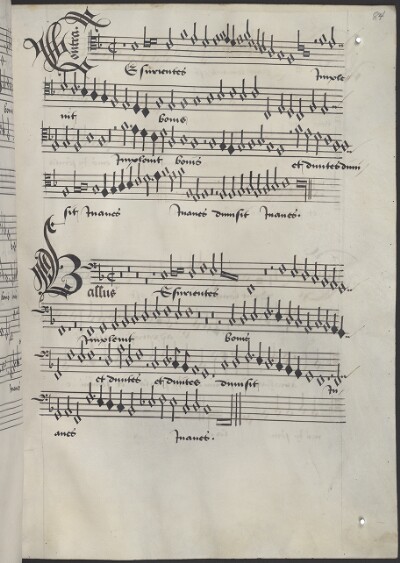 Contra
Esurientes Imple
uit bonis
Impleuit bonis et diuites dimi
sit Inanes Inanes dimisit Inanes.
Bassus Esurientes
Impleuit bonis
et diuites et diuites dimisit In
anes Inanes.